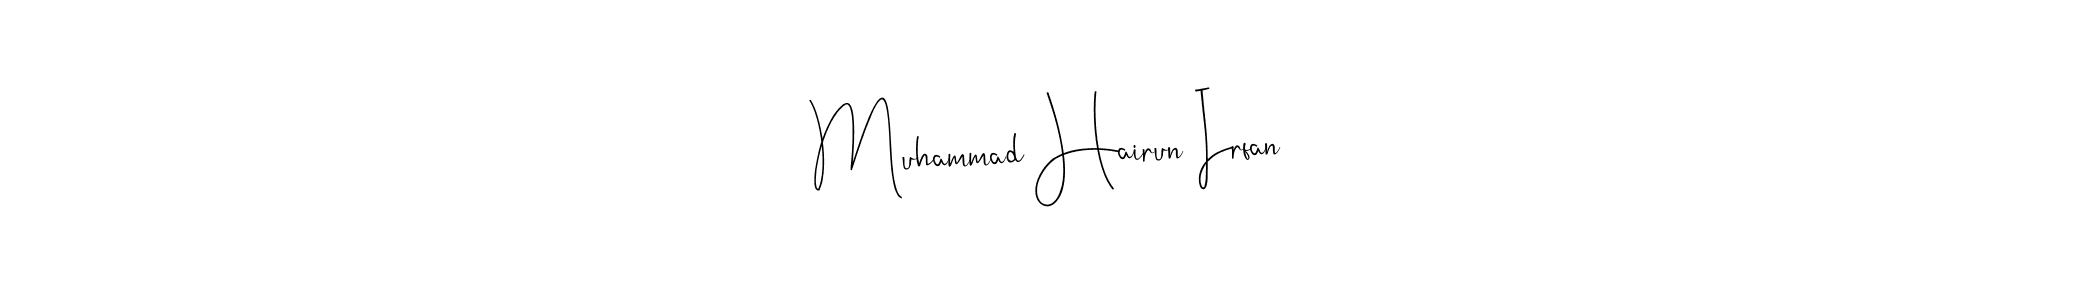 Muhammad Hairun Irfan